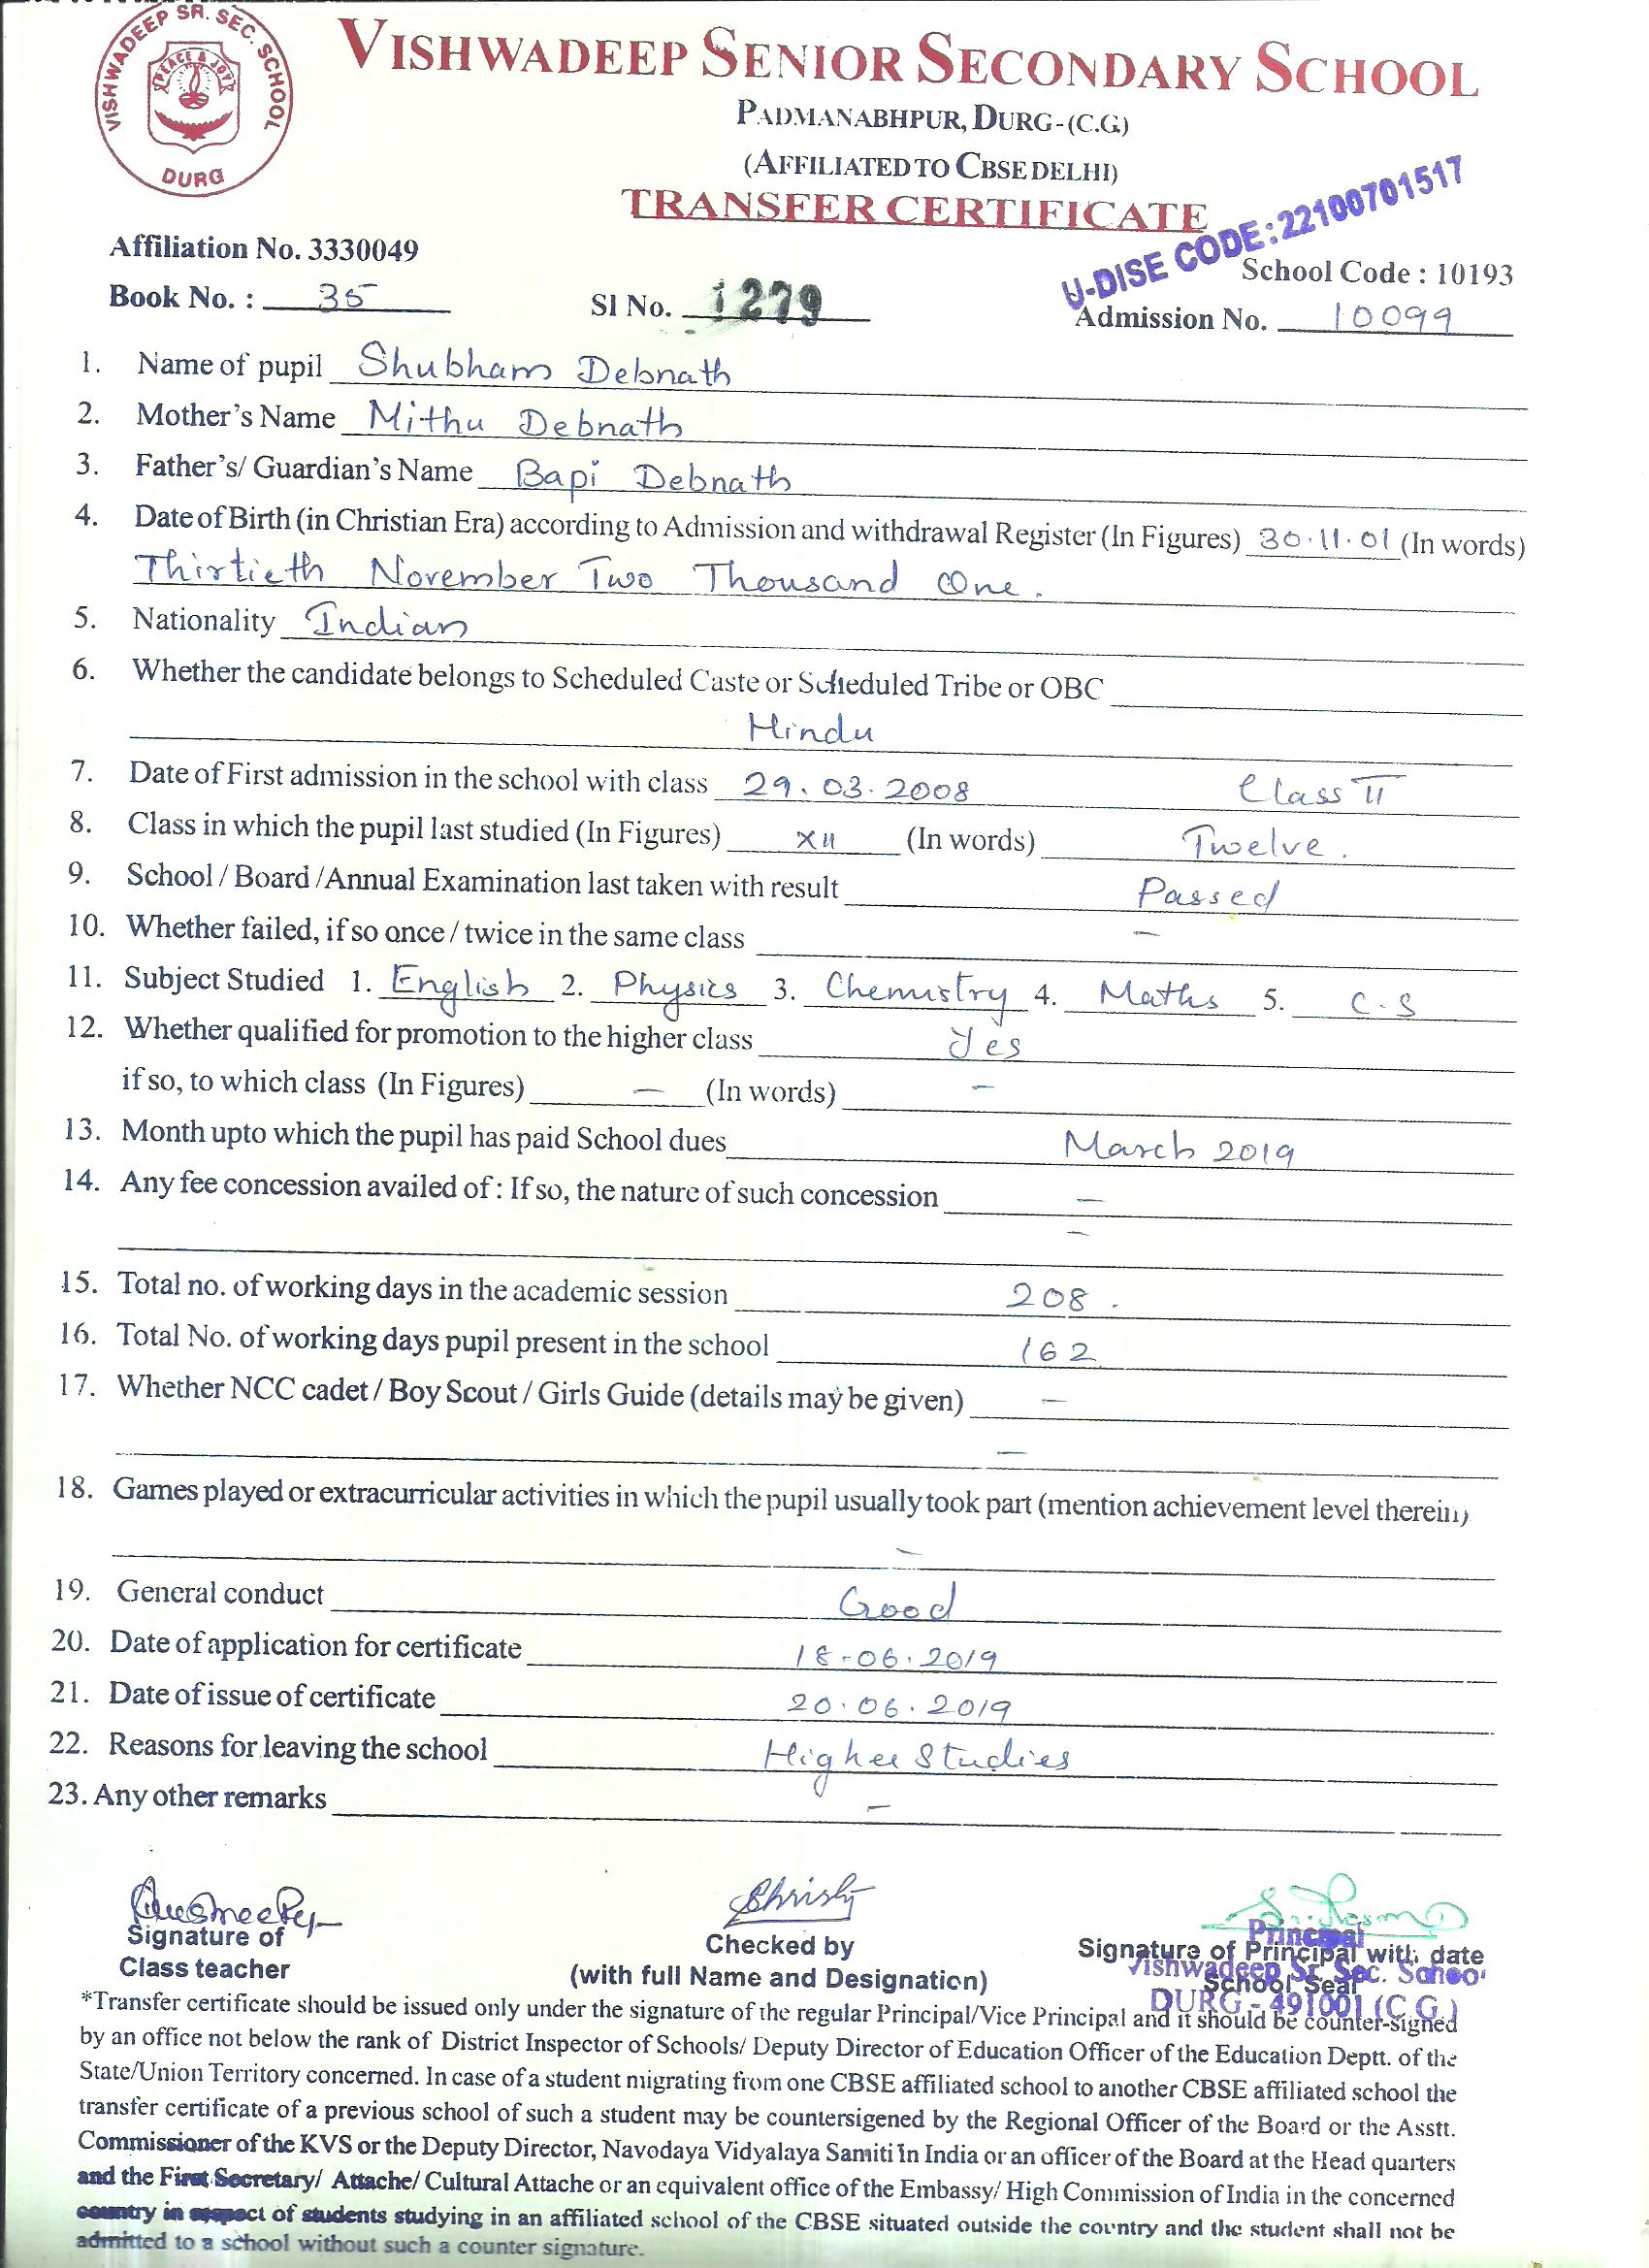 VISHWADEEP SR. SEC. SCHOOL
PEACE & JOY
DURG
VISHWADEEP SENIOR SECONDARY SCHOOL
PADMANABHPUR, DURG-(C.G.)
(AFFILIATED TO CBSE DELHI)
TRANSFER CERTIFICATE
U-DISE CODE: 22100701517
Affiliation No. 3330049
School Code : 10193
Book No. : 35 Sl No. 1279 Admission No. 10099
1. Name of pupil Shubham Debnath
2. Mother's Name Mithu Debnath
3. Father's/ Guardian's Name Bapi Debnath
4. Date of Birth (in Christian Era) according to Admission and withdrawal Register (In Figures) 30.11.01 (In words)
Thirtieth November Two Thousand One.
5. Nationality Indian
6. Whether the candidate belongs to Scheduled Caste or Scheduled Tribe or OBC
Hindu
7. Date of First admission in the school with class 29.03.2008 Class II
8. Class in which the pupil last studied (In Figures) XII (In words) Twelve.
9. School / Board /Annual Examination last taken with result Passed
10. Whether failed, if so once / twice in the same class —
11. Subject Studied 1. English 2. Physics 3. Chemistry 4. Maths 5. C.S
12. Whether qualified for promotion to the higher class Yes
if so, to which class (In Figures) — (In words) —
13. Month upto which the pupil has paid School dues March 2019
14. Any fee concession availed of : If so, the nature of such concession —
—
15. Total no. of working days in the academic session 208.
16. Total No. of working days pupil present in the school 162
17. Whether NCC cadet / Boy Scout / Girls Guide (details may be given) —
—
18. Games played or extracurricular activities in which the pupil usually took part (mention achievement level therein)
—
19. General conduct Good
20. Date of application for certificate 18-06.2019
21. Date of issue of certificate 20.06.2019
22. Reasons for leaving the school Higher Studies
23. Any other remarks —
Signature of
Class teacher
Christy
Checked by
(with full Name and Designation)
Principal
Signature of Principal with date
Vishwadeep Sr. Sec. School
School Seal
DURG - 491001 (C.G.)
*Transfer certificate should be issued only under the signature of the regular Principal/Vice Principal and it should be counter-signed
by an office not below the rank of District Inspector of Schools/ Deputy Director of Education Officer of the Education Deptt. of the
State/Union Territory concerned. In case of a student migrating from one CBSE affiliated school to another CBSE affiliated school the
transfer certificate of a previous school of such a student may be countersigened by the Regional Officer of the Board or the Asstt.
Commissioner of the KVS or the Deputy Director, Navodaya Vidyalaya Samiti in India or an officer of the Board at the Head quarters
and the First Secretary/ Attache/ Cultural Attache or an equivalent office of the Embassy/ High Commission of India in the concerned
country in respect of students studying in an affiliated school of the CBSE situated outside the country and the student shall not be
admitted to a school without such a counter signature.